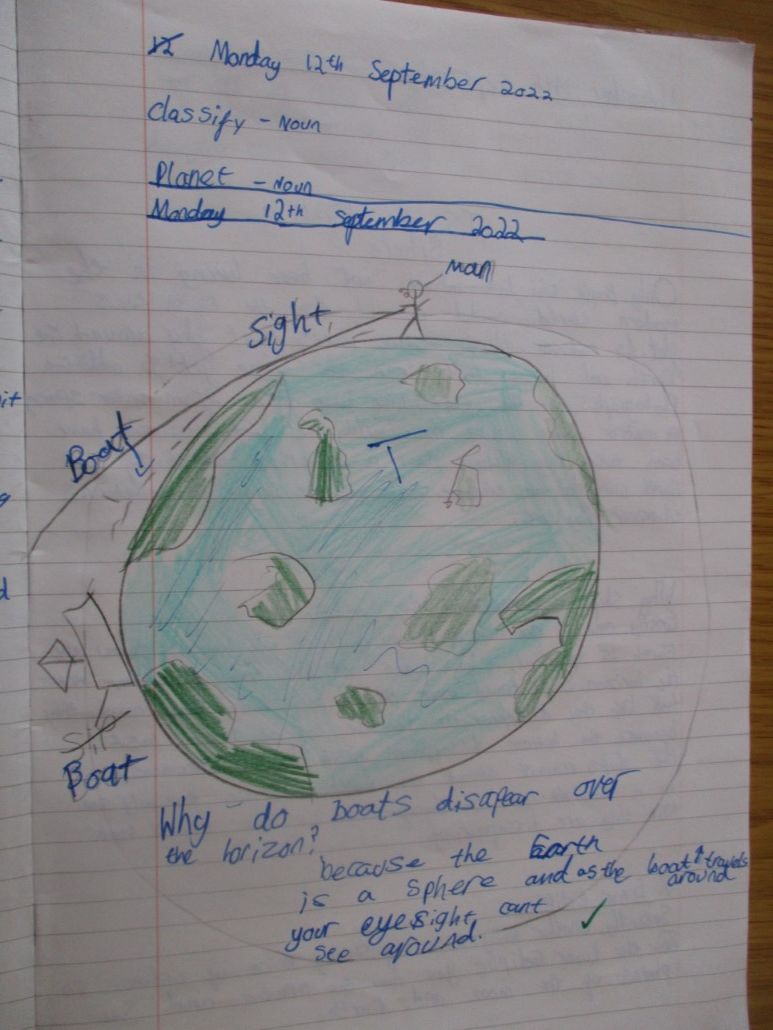 12 Monday 12th September 2022
Classify - Noun
Planet - Noun
Monday 12th September 2022
Man
Sight
Boat
T
Sip
Boat
Why do boats disapear over
the horizon?
because the Earth
is a sphere and as the boat travels
around
your eyesight, cant
see around.